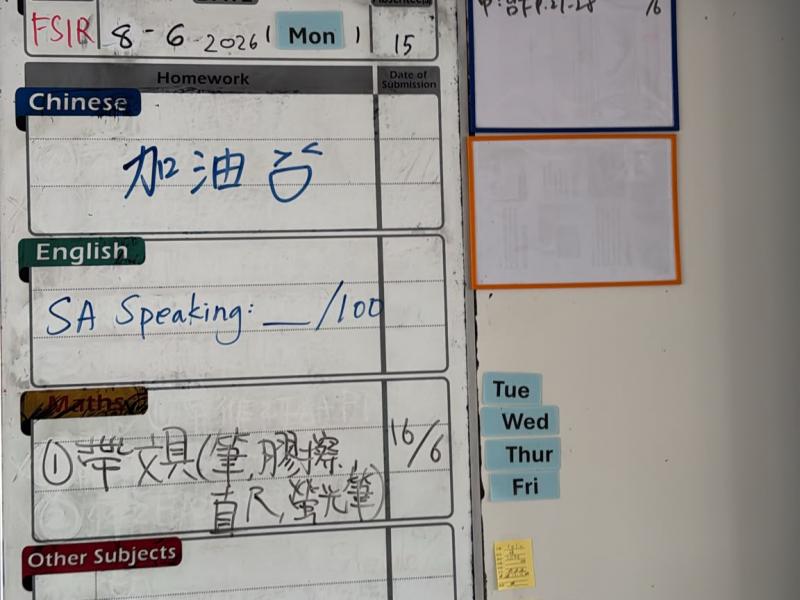 FSIR 8-6-2026 ( Mon ) 15
Homework
Date of Submission
Chinese
加油
English
SA Speaking: __/100
Maths
① 帶文具(筆,膠擦,
直尺,螢光筆)
16/6
Other Subjects
Tue
Wed
Thur
Fri